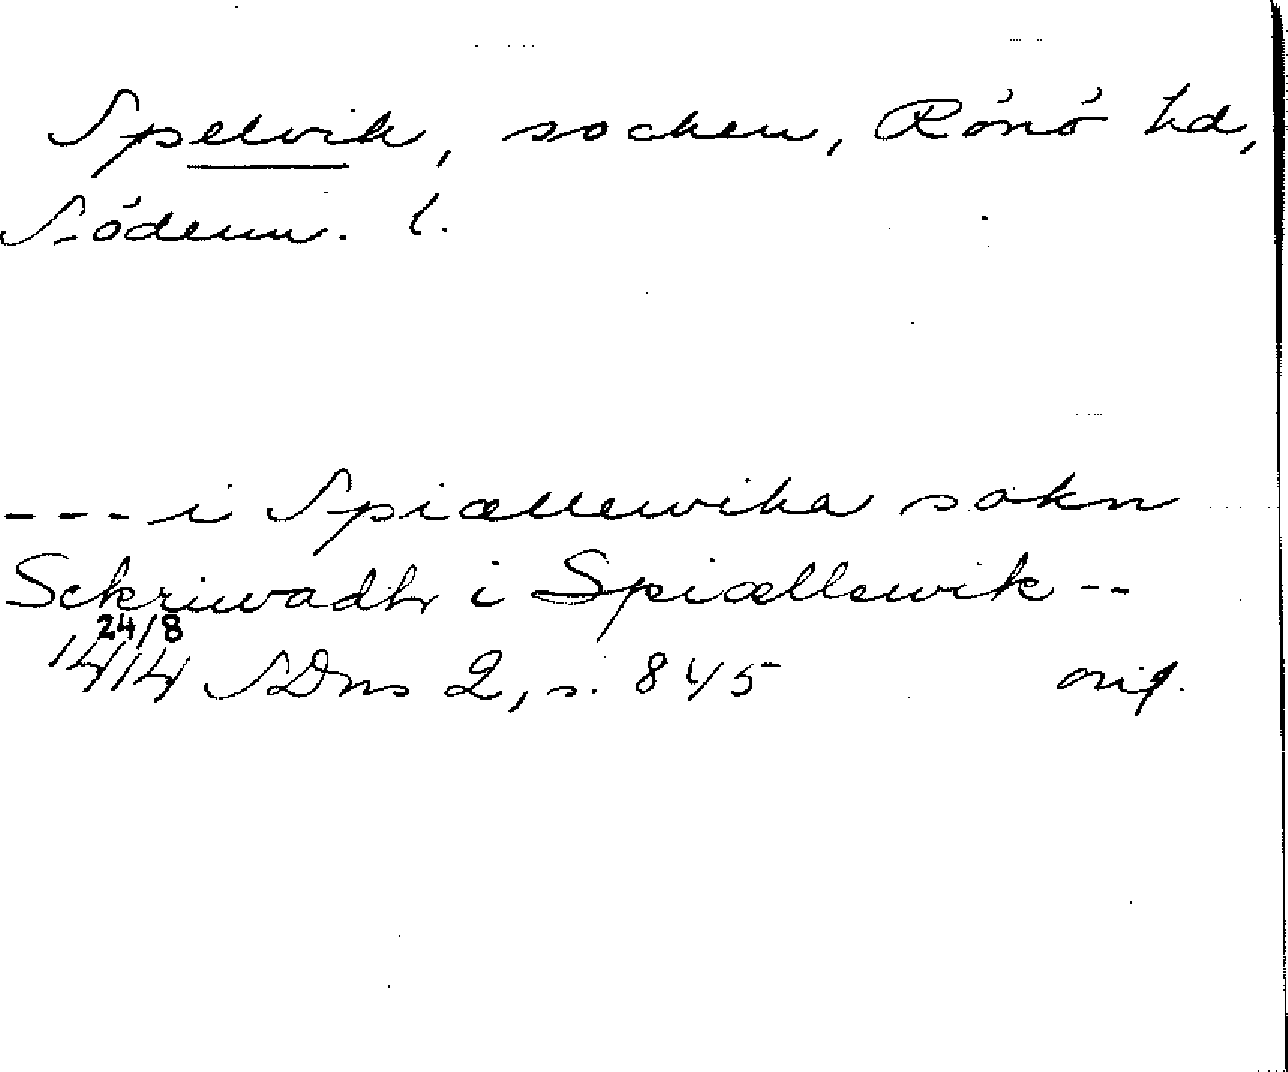 Spelvik, socken, Rönö hd,
Söderm. l.
--- i Spiællewika sokn
Sckriwadh i Spiællewik --
24/8
1414 SDns 2, s. 845 orig.